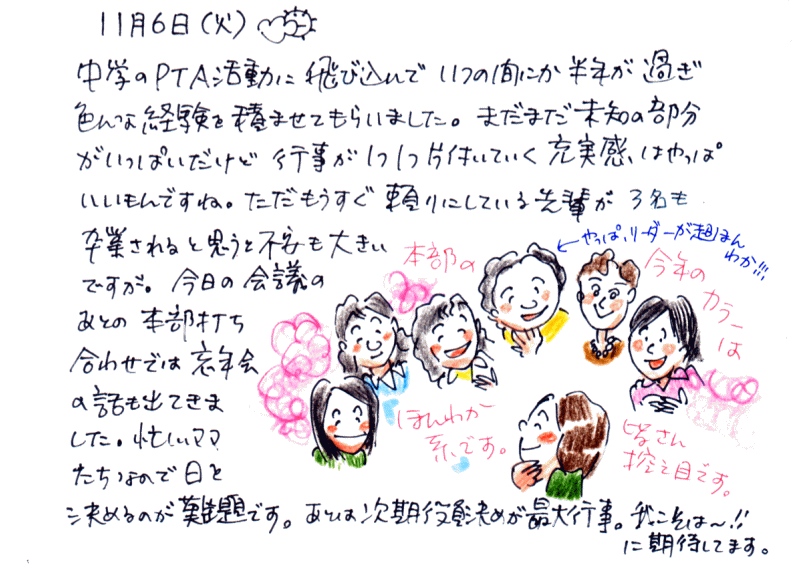 11月6日(火)
中学のPTA活動に飛び込んで いつの間にか 半年が 過ぎ
色んな経験を積ませてもらいました。まだまだ未知の部分
がいっぱいだけど 行事が1つ1つ片付いていく 充実感はやっぱ
いいもんですね。ただもうすぐ 頼りにしている先輩が 3名も
卒業されると思うと不安も大きい
ですが。今日の会議の
あとの 本部打ち
合わせでは 忘年会
の話も出てきま
した。忙しいママ
たちなので 日を
決めるのが難題です。あとは次期役員決めが最大行事。我こそは〜!!
に期待してます。
←やっぱ、リーダーが超ほん
わか!!!
本部の
今年の
カラーは
ほんわか
系です。
皆さん
控え目です。